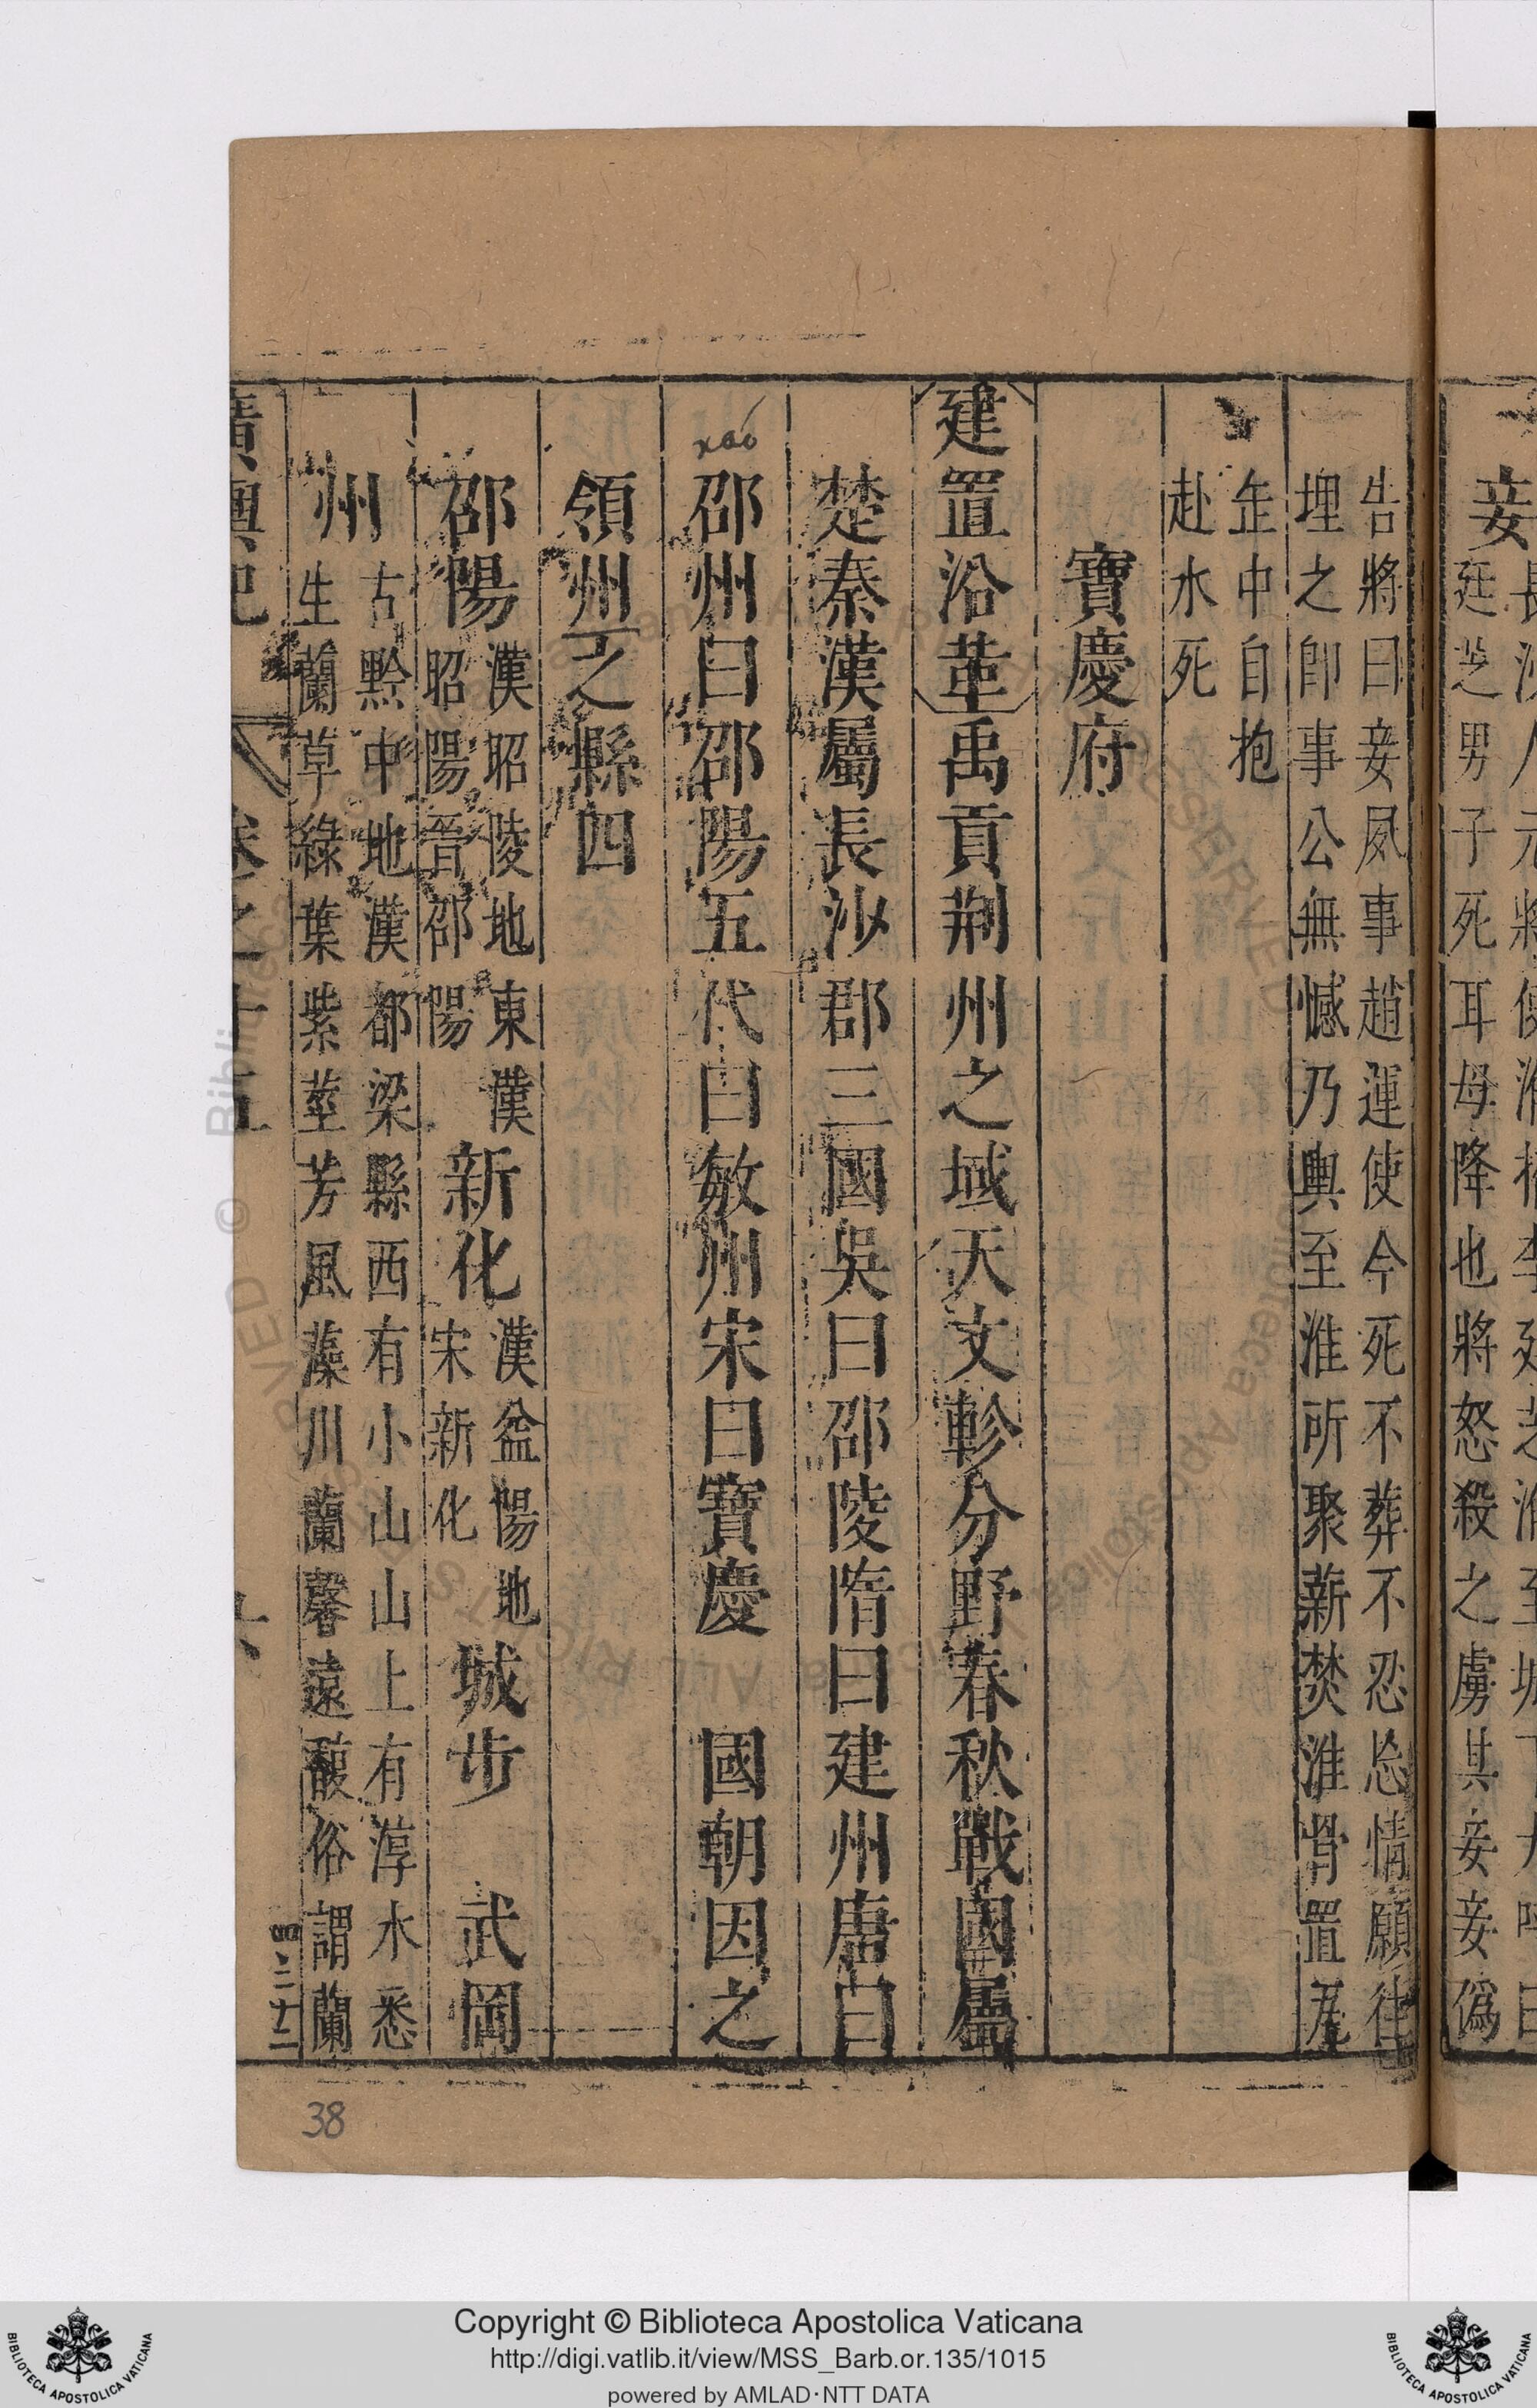 妾
廷芝男子死耳毋降也將怒殺之虜其妾妾偽
告將曰妾夙事趙運使今死不葬不忍忘情願往
埋之即事公無憾乃輿至淮所聚薪焚淮骨置瓦
缶中自抱
赴水死
寶慶府
建置沿革 禹貢荆州之域天文軫分野春秋戰國屬
楚秦漢屬長沙郡三國吳曰邵陵隋曰建州唐曰
xaó
邵州曰邵陽五代曰敏州宋曰寶慶 國朝因之
領州一之縣四
邵陽 漢昭陵地東漢
昭陽晉邵陽
新化 漢益陽地
宋新化
城步 武岡
州 古黔中地漢都梁縣西有小山山上有渟水悉
生蘭草綠葉紫莖芳風藻川蘭馨遠馥俗謂蘭
廣輿記 卷之十五
四三十二
38
Copyright © Biblioteca Apostolica Vaticana
http://digi.vatlib.it/view/MSS_Barb.or.135/1015
powered by AMLAD·NTT DATA
BIBLIOTECA APOSTOLICA VATICANA
BIBLIOTECA APOSTOLICA VATICANA